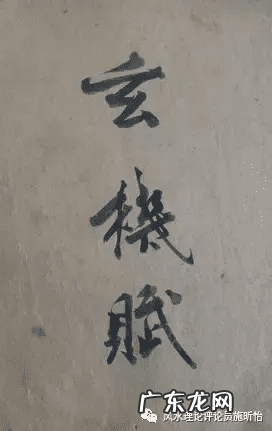 玄機賦
广东龙网
风水理论评论员施昕怡